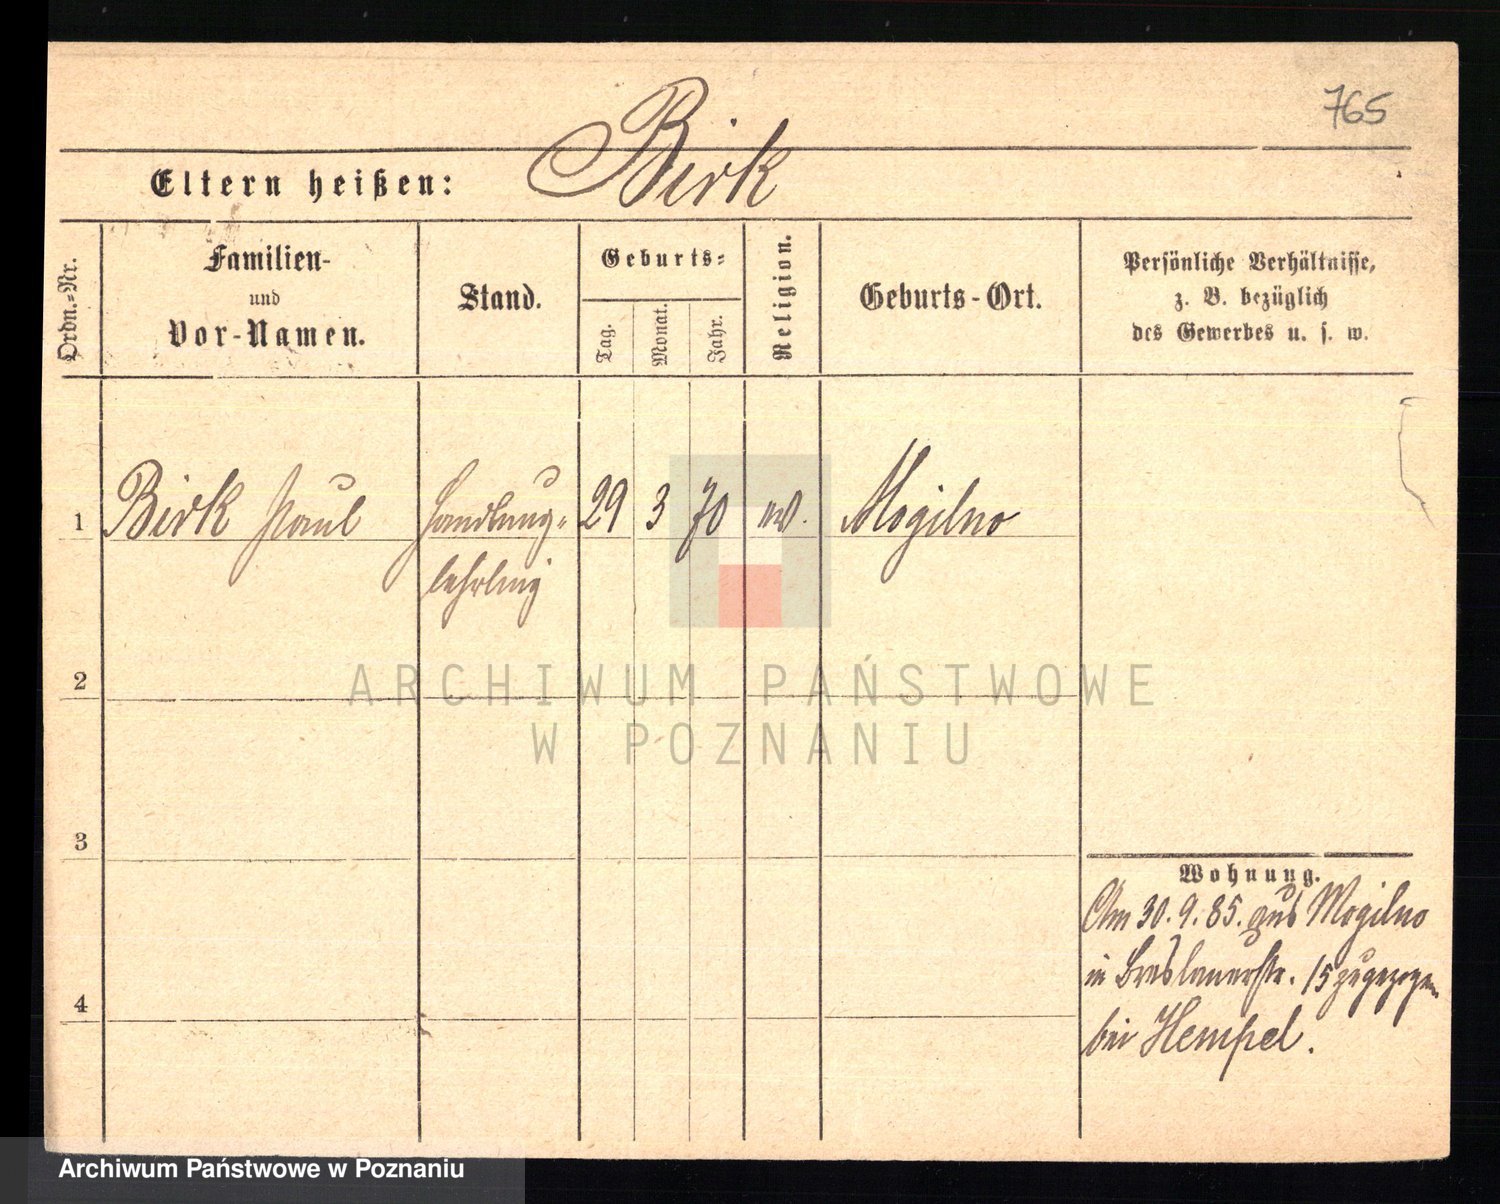 765
Birk
Eltern heißen:
Ordn.-Nr.
Familien-
und
Vor-Namen.
Stand.
Geburts-
Tag.
Monat.
Jahr.
Religion.
Geburts-Ort.
Persönliche Verhältnisse,
z. B. bezüglich
des Gewerbes u. s. w.
1 Birk Paul Handlung- 29 3 70 ev. Mogilno
lehrling
2
3
4
Wohnung.
Am 30.9.85. aus Mogilno
in Breslauerstr. 15 zugezogen
bei Hempel.
ARCHIWUM PAŃSTWOWE
W POZNANIU
Archiwum Państwowe w Poznaniu